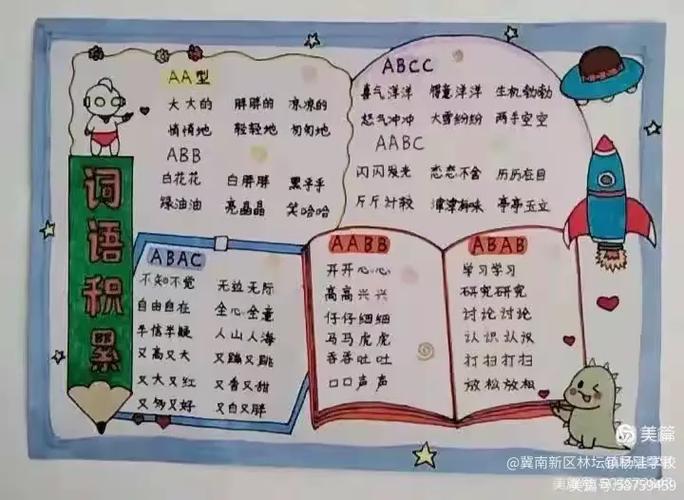 词语积累
AA型
大大的 胖胖的 凉凉的
悄悄地 轻轻地 匆匆地
ABB
白花花 白胖胖 黑乎乎
绿油油 亮晶晶 笑哈哈
ABCC
喜气洋洋 得意洋洋 生机勃勃
怒气冲冲 大雪纷纷 两手空空
AABC
闪闪发光 恋恋不舍 历历在目
斤斤计较 津津有味 亭亭玉立
ABAC
不知不觉 无边无际
自由自在 全心全意
半信半疑 人山人海
又高又大 又蹦又跳
又大又红 又香又甜
又多又好 又白又胖
AABB
开开心心
高高兴兴
仔仔细细
马马虎虎
吞吞吐吐
口口声声
ABAB
学习学习
研究研究
讨论讨论
认识认识
打扫打扫
放松放松
美篇
@冀南新区林坛镇杨洼学校
美篇号:58759459